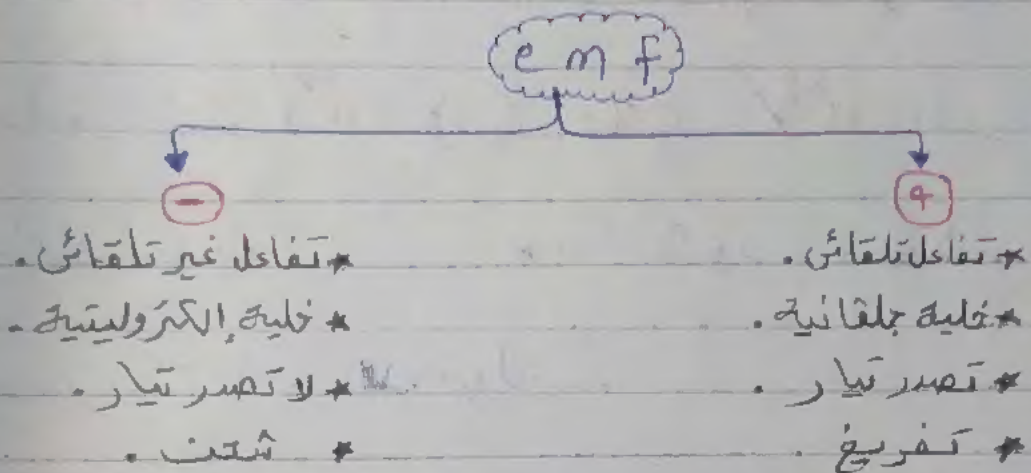 emf
+
* تفاعل تلقائى.
* خلية جلفانية.
* تصدر تيار.
* تفريغ.
-
* تفاعل غير تلقائى.
* خلية إلكتروليتية.
* لا تصدر تيار.
* شحن.